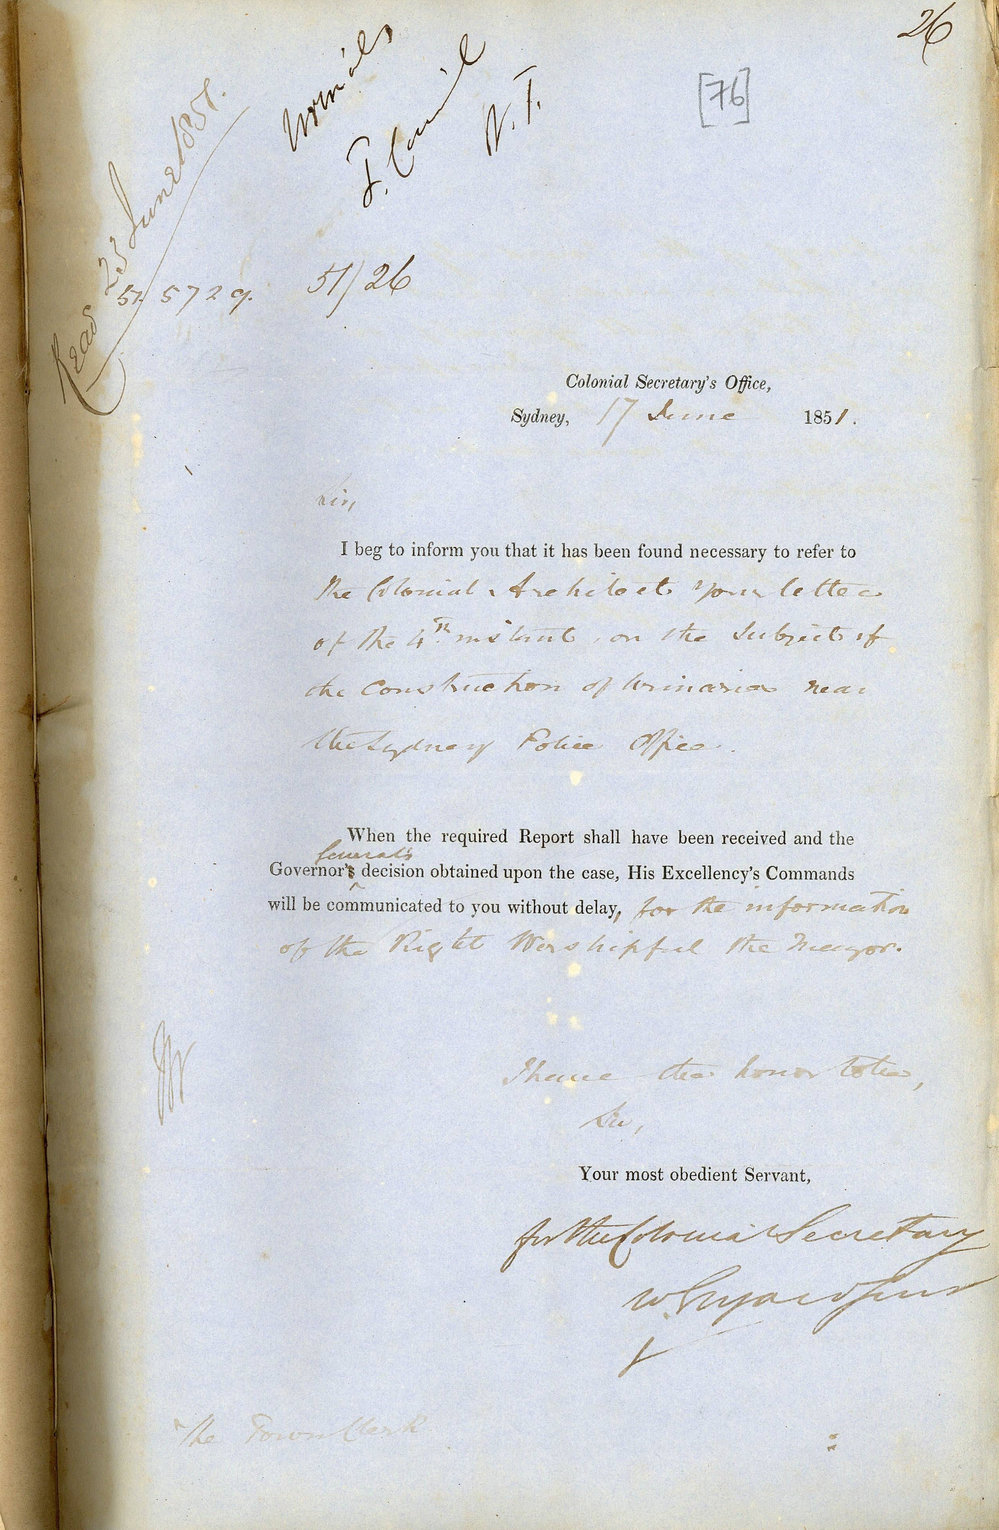 26
[76]
Urinals
F. Council
N. T.
Read 23 June 1851.
51/5729.
51/26
Colonial Secretary's Office,
Sydney, 17 June 1851.
Sir,
I beg to inform you that it has been found necessary to refer to
the Colonial Architect your letter
of the 4th instant, on the subject of
the construction of Urinaries near
the Sydney Police Office.
When the required Report shall have been received and the
General's
Governor's decision obtained upon the case, His Excellency's Commands
will be communicated to you without delay, for the information
of the Right Worshipful the Mayor.
I have the honor to be,
Sir,
Your most obedient Servant,
for the Colonial Secretary
W.
The Town Clerk